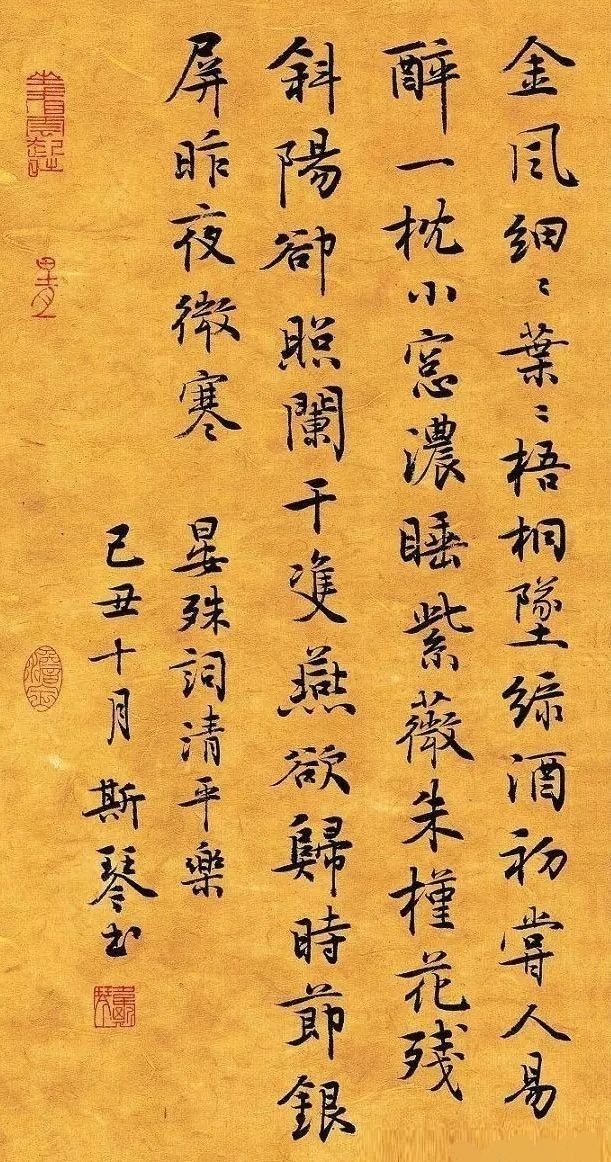 金風細〻葉〻梧桐墜緑酒初嘗人易
醉一枕小窓濃睡紫薇朱槿花残
斜陽卻照闌干雙燕欲歸時節銀
屏昨夜微寒
晏殊詞清平樂
己丑十月斯琴书